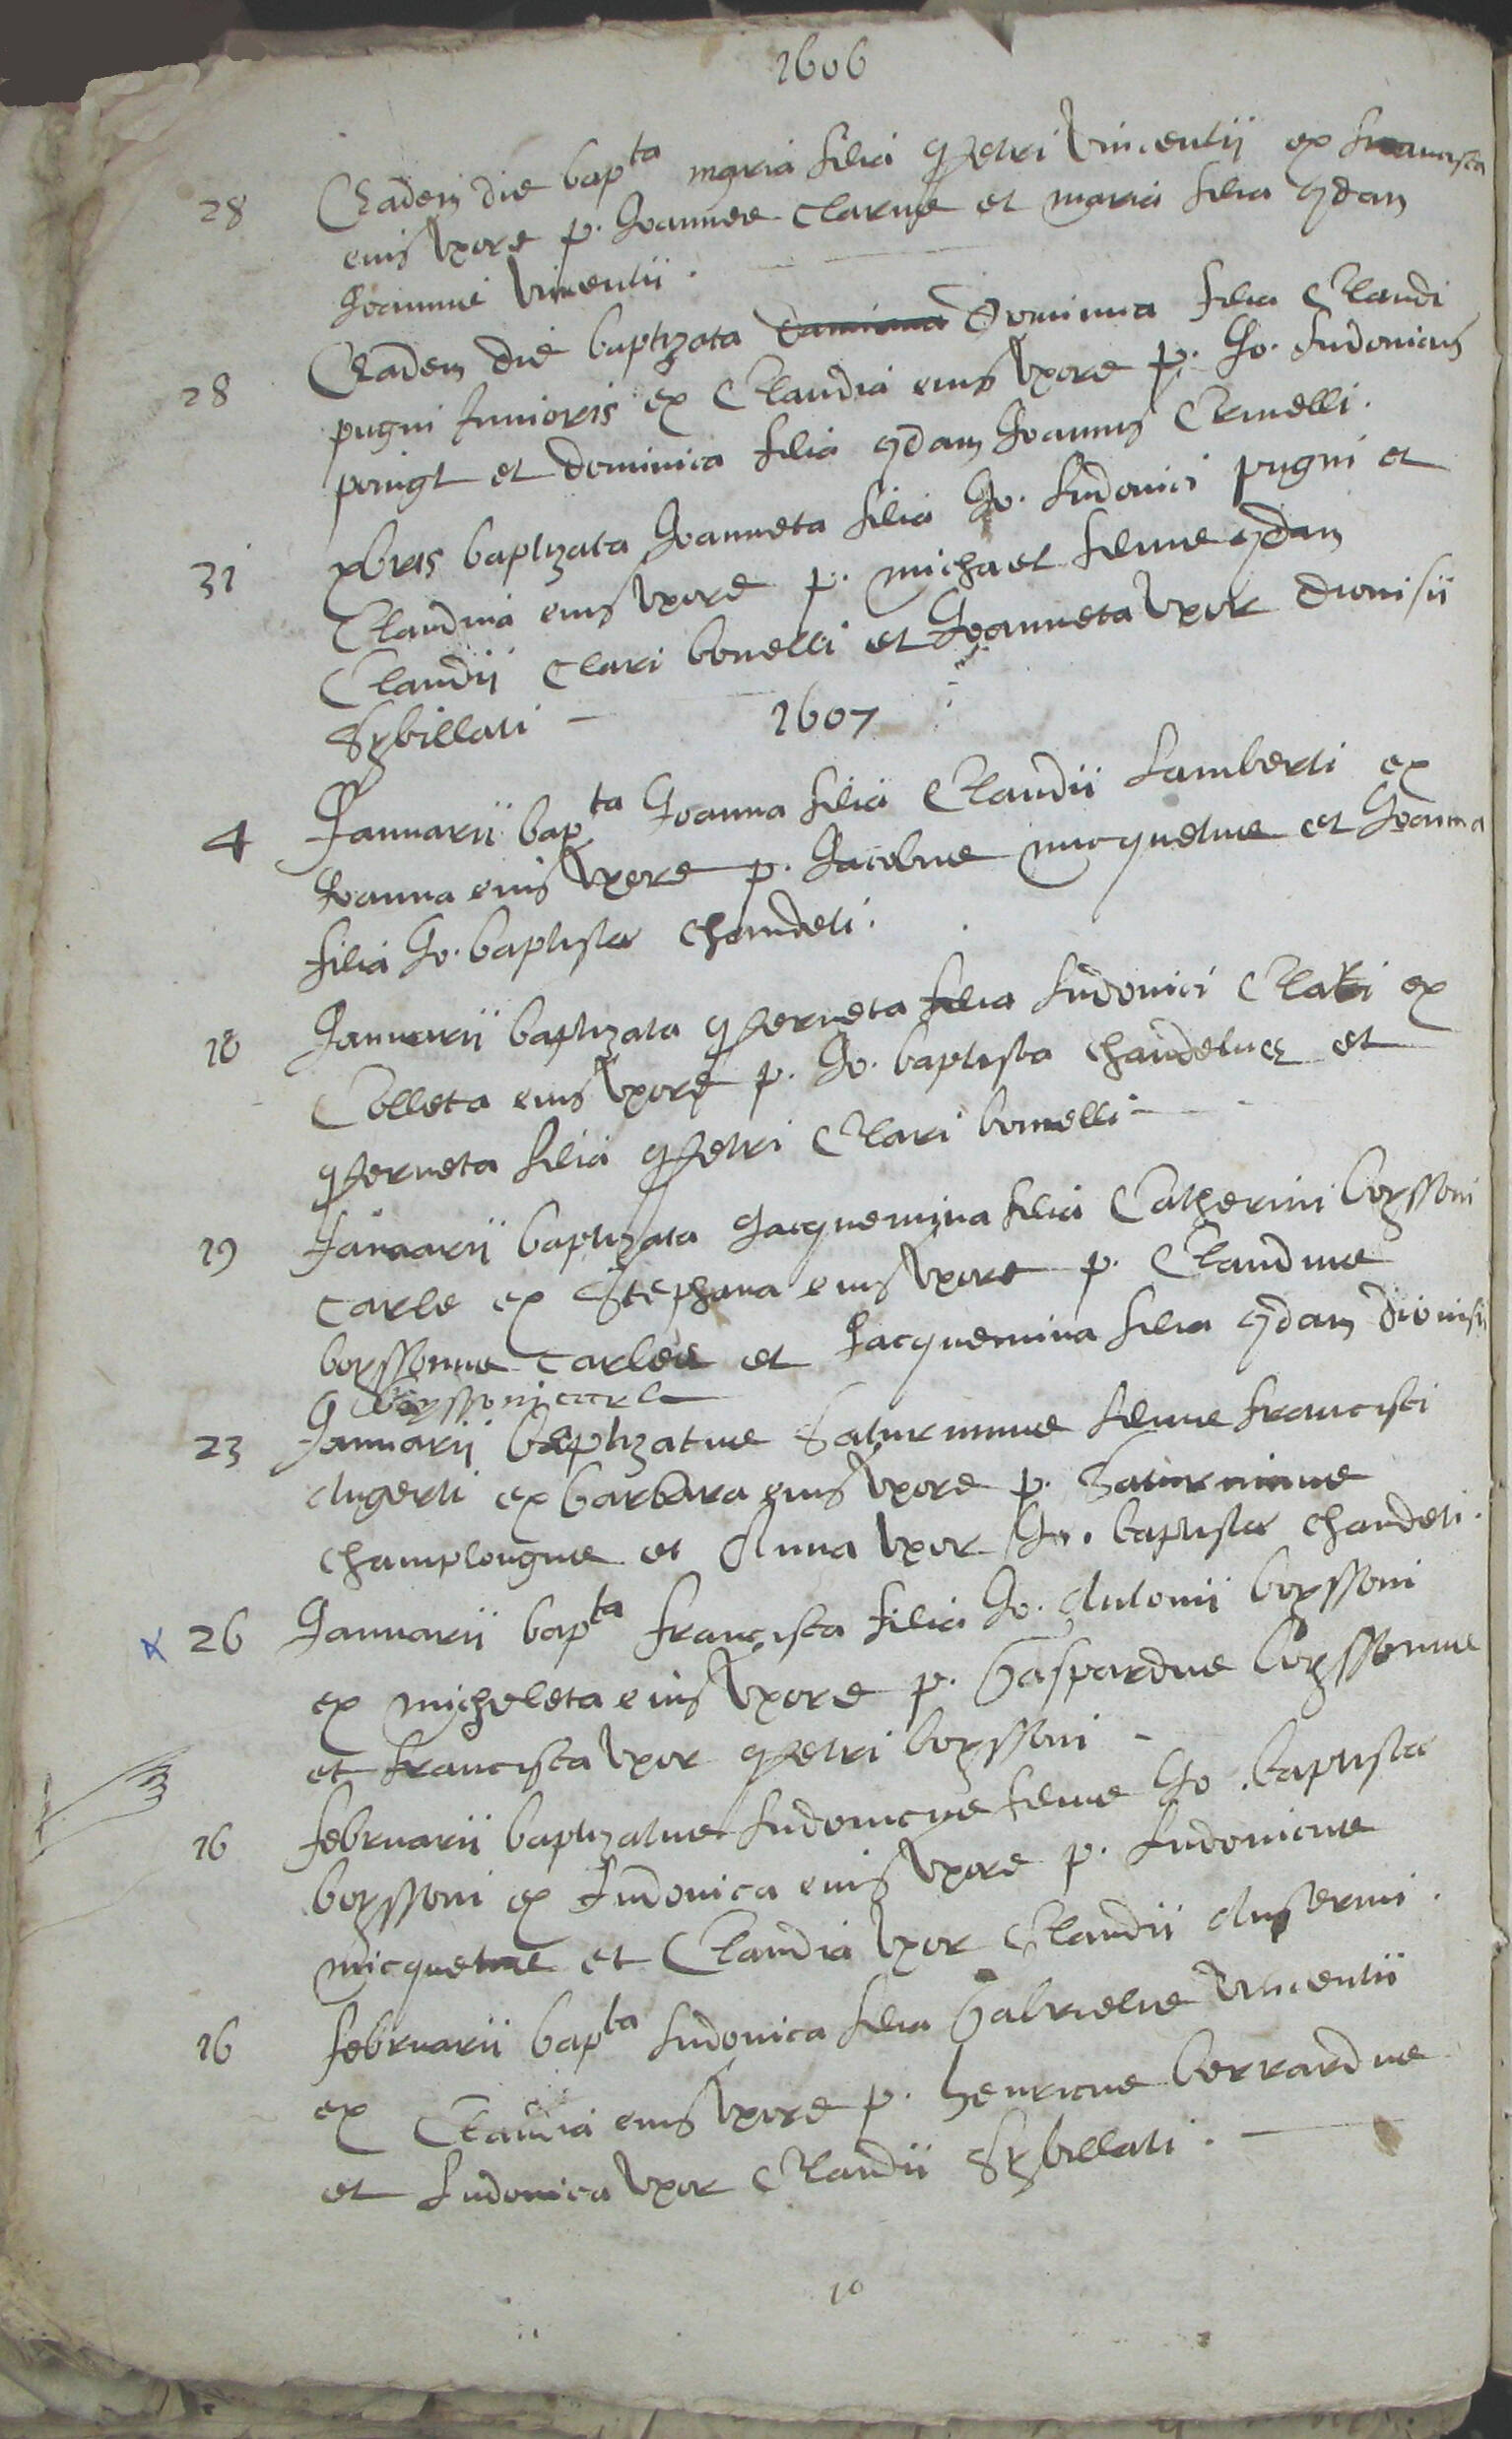 1606
28 Eadem die bap^ta maria filia Petri Vincentii ex francisca
eius Vxore p. Joannes Clarus et maria filia qdam
Joannis Vincentii.
28 Eadem die baptizata Dominica filia Claudi
pugni Junioris ex Claudia eius Vxore p. Jo. Ludovicus
et dominica filia qdam Joannis
31 xbris baptizata Joanneta filia Jo. Ludovici pugni et
Claudina eius Vxore p. michael filius qdam
Claudii Clari bonelli et Joanneta Vxor Dionisii
Sybillati
1607
4 Januarii bap^ta Joanna filia Claudii Lamberti ex
Joanna eius Vxore p. Jacobus micquetus et Joanna
filia Jo. baptistæ chandeti.
18 Januarii baptizata Perneta filia Ludovici Clari ex
Colleta eius Vxore p. Jo. baptista chandetus et
Perneta filia Petri Clari bonelli
19 Januarii baptizata Jacquemina filia Catherini boyssoni
carle ex Stephana eius Vxore p. Claudius
boyssonus carles et Jacquemina filia qdam Dionisii
boyssoni carle
23 Januarii baptizatus Saturninus filius francisci
Augerti ex barbara eius Vxore p. Saturninus
champlongus et Anna Vxor Jo. baptistæ chandeti.
26 Januarii bap^ta francisca filia Jo. Antonii boyssoni
ex micheleta eius Vxore p. Gaspardus boyssonus
et francisca Vxor Petri boyssoni
16 februarii baptizatus Ludovicus filius Jo. baptistæ
boyssoni ex Ludovica eius Vxore p. Ludovicus
micquetus et Claudia Vxor Claudii Ansermi.
16 februarii bap^ta Ludovica filia Gabrielis Vincentii
ex Claudia eius Vxore p. henricus berrardus
et Ludovica Vxor Claudii Sybillati.
10